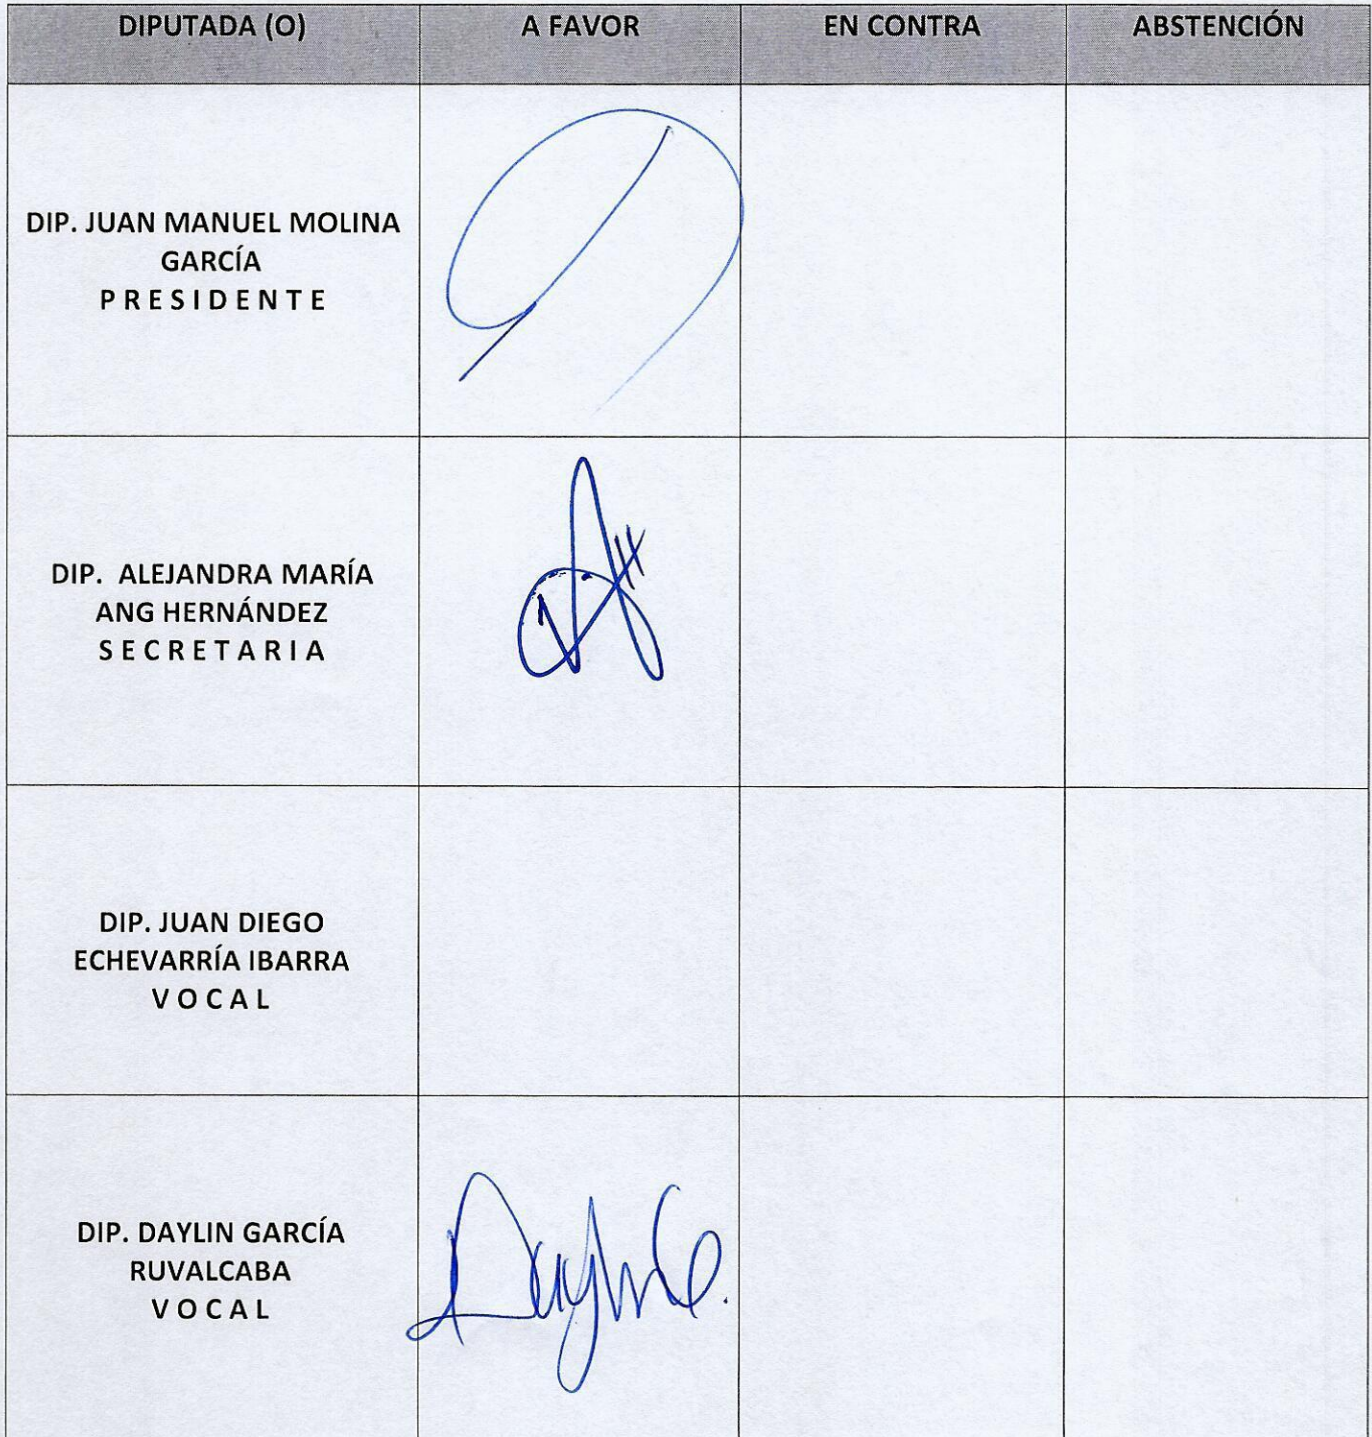 DIPUTADA (O) A FAVOR EN CONTRA ABSTENCIÓN
DIP. JUAN MANUEL MOLINA
GARCÍA
P R E S I D E N T E
DIP. ALEJANDRA MARÍA
ANG HERNÁNDEZ
S E C R E T A R I A
DIP. JUAN DIEGO
ECHEVARRÍA IBARRA
V O C A L
DIP. DAYLIN GARCÍA
RUVALCABA
V O C A L
Daylin G.